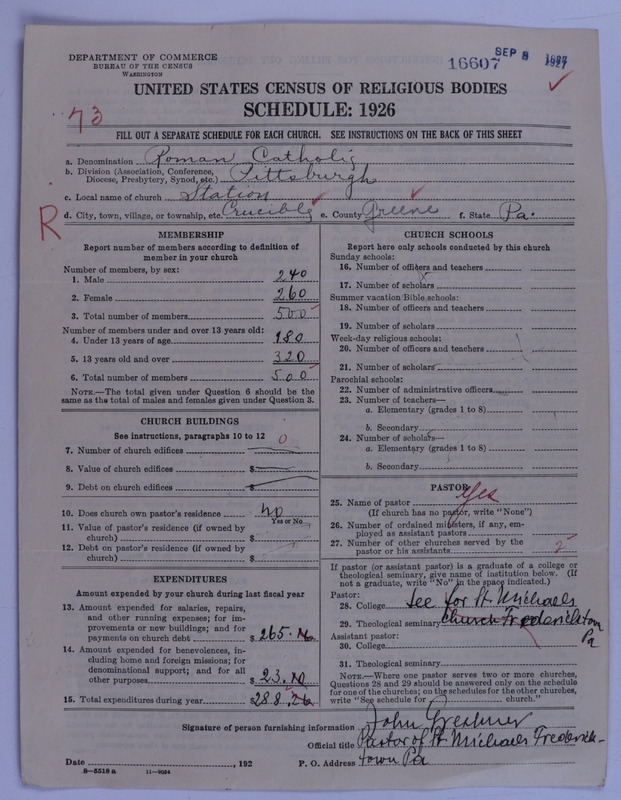 DEPARTMENT OF COMMERCE
BUREAU OF THE CENSUS
WASHINGTON
16607
SEP 8 1927
UNITED STATES CENSUS OF RELIGIOUS BODIES
SCHEDULE: 1926
73
FILL OUT A SEPARATE SCHEDULE FOR EACH CHURCH. SEE INSTRUCTIONS ON THE BACK OF THIS SHEET
a. Denomination Roman Catholic
b. Division (Association, Conference, Diocese, Presbytery, Synod, etc.) Pittsburgh
c. Local name of church Station
R
d. City, town, village, or township, etc. Crucible e. County Greene f. State Pa.
MEMBERSHIP
Report number of members according to definition of
member in your church
Number of members, by sex:
1. Male 240
2. Female 260
3. Total number of members 500
Number of members under and over 13 years old:
4. Under 13 years of age 180
5. 13 years old and over 320
6. Total number of members 500
NOTE.—The total given under Question 6 should be
same as the total of males and females given under Question 3.
CHURCH BUILDINGS
See instructions, paragraphs 10 to 12 0
7. Number of church edifices
8. Value of church edifices $
9. Debt on church edifices $
10. Does church own pastor's residence? no
Yes or No
11. Value of pastor's residence (if owned by
church) $
12. Debt on pastor's residence (if owned by
church) $
EXPENDITURES
Amount expended by your church during last fiscal year
13. Amount expended for salaries, repairs,
and other running expenses; for im-
provements or new buildings; and for
payments on church debt $ 265.
14. Amount expended for benevolences, in-
cluding home and foreign missions; for
denominational support; and for all
other purposes $ 23.
15. Total expenditures during year $ 288.
CHURCH SCHOOLS
Report here only schools conducted by this church
Sunday schools:
16. Number of officers and teachers
17. Number of scholars
Summer vacation Bible schools:
18. Number of officers and teachers
19. Number of scholars
Week-day religious schools:
20. Number of officers and teachers
21. Number of scholars
Parochial schools:
22. Number of administrative officers
23. Number of teachers—
a. Elementary (grades 1 to 8)
b. Secondary
24. Number of scholars—
a. Elementary (grades 1 to 8)
b. Secondary
PASTOR
25. Name of pastor Yes
(If church has no pastor, write "None")
26. Number of ordained ministers, if any, em-
ployed as assistant pastors
27. Number of other churches served by the
pastor or his assistants 2
If pastor (or assistant pastor) is a graduate of a college or
theological seminary, give name of institution below. (If
not a graduate, write "No" in the space indicated.)
Pastor:
28. College See for St Michaels
29. Theological seminary Church Fredericktown
Pa
Assistant pastor:
30. College
31. Theological seminary
NOTE.—Where one pastor serves two or more churches,
Questions 28 and 29 should be answered only on the schedule
for one of the churches; on the schedules for the other churches,
write "See schedule for church."
Signature of person furnishing information John
Official title Pastor of St Michaels Frederick-
Date , 192 P. O. Address town Pa
8—5518 a 11—9064